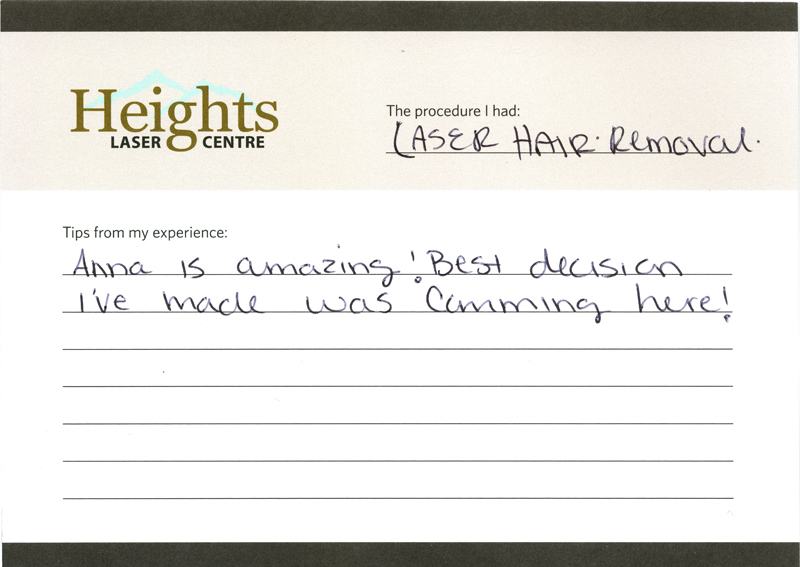 Heights
LASER CENTRE
The procedure I had:
LASER HAIR Removal.
Tips from my experience:
Anna is amazing! Best decision
I've made was Comming here!